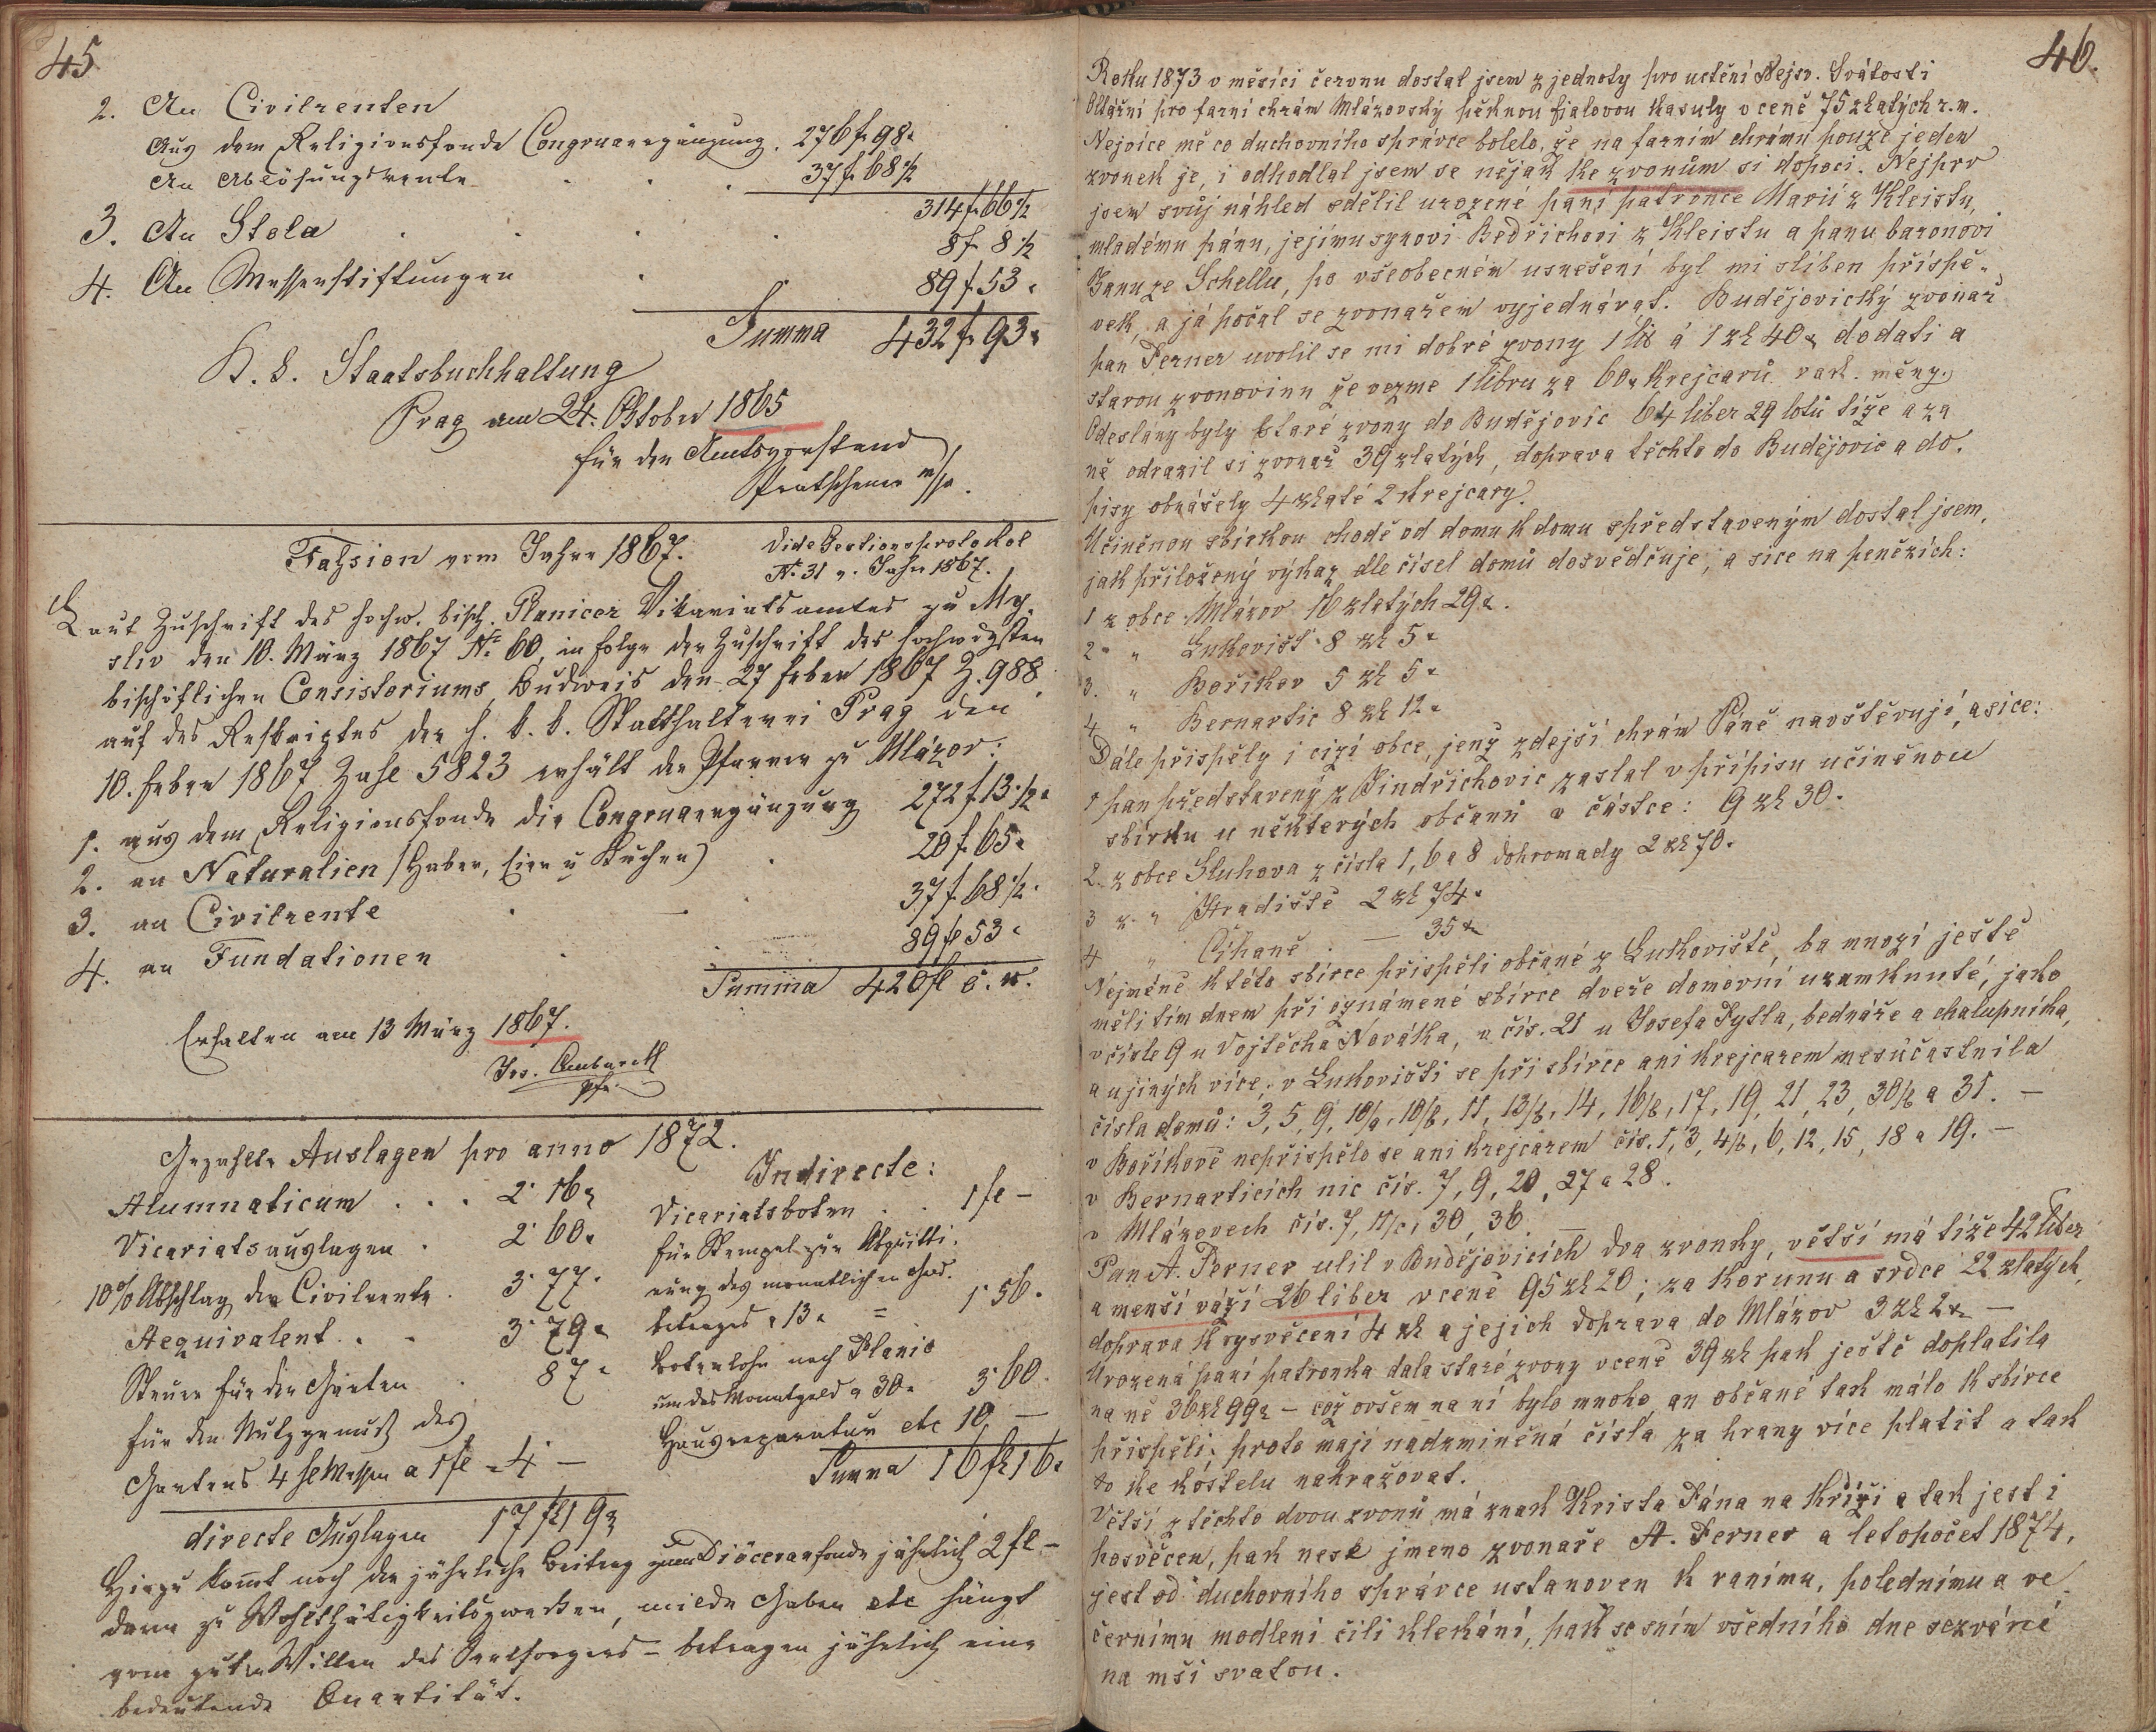 45
2. An Civilrenten
Aus dem Religionsfonde Congruaergänzung. 276 f 98.
An Ablösungsrente 37 f 68½
314 f 66½
3. An Stola 8 f 8½
4. An Messenstiftungen 89 f 53.
Summa 432 f 93.
K. k. Staatsbuchhaltung
Prag am 24. Oktober 1865
für den Amtsvorstand
m/p.
Fassion vom Jahre 1867. Vide Gestionsprotokol
No. 31 v. Jahr 1867.
Laut Zuschrift des hochw. bisch. Planicer Vikariatsamtes zu My-
sliv den 10. März 1867 No. 60, in Folge der Zuschrift des hochwdgsten
bischöflichen Consistoriums Budweis den 27 Feber 1867 Z. 988.
auf des Reskriptes der h. k. k. Statthalterei Prag den
10. Feber 1867 Zahl 5823 erhält der Pfarrer zu Mlázov:
1. aus dem Religionsfonde die Congruaergänzung 272 f 13½.
2. an Naturalien (Haber, Eier u Kuchen) 20 f 65.
3. an Civilrente 37 f 68½.
4. an Fundationen 89 fl 53.
Summa 420 fl ö. w.
Erhalten am 13 März 1867.
Jos.
Pfr.
Gezahlte Auslagen pro anno 1872.
Alumnaticum . . . 2. 16.
Vicariatsauslagen . 2. 60.
10% Abschlag der Civilrente . 3. 77.
Aequivalent . . 3. 79.
Steuer für den Garten . 87.
für den Nutzgenuß des
Gartens 4 hl Messen a 1 fl = 4 —
directe Auslagen 17 fl 19
Indirecte:
Vicariatsboten . . 1 fl —
für Stempel zur Abquitti-
rung des monatlichen Geld-
betrages a 13. = 1. 56.
Botenlohn nach Planic
um das Monatgeld a 30. 3. 60.
Hausreparatur etc 10. —
Summa 16 fl 16.
Hiezu kommt noch der jährliche Beitrag zum Diöcesanfonde jährlich 2 fl —
dann zu Wohlthätigkeitszwecken, milde Gaben etc hängt
vom guten Willen des Seelsorgers — betragen jährlich eine
bedeutende Quantität.
46.
Roku 1873 v měsíci červnu dostal jsem z jednoty pro uctění Nejsv. Svátosti
Oltářní pro farní chrám Mlázovský pěknou fialovou kasuly v ceně 75 zlatých r. m.
Nejvíce mě co duchovního správce bolelo, že na farním chrámu pouze jeden
zvonek je, i odhodlal jsem se nějak ke zvonům si dopoci. Nejprv
jsem svůj náhled sdělil urozené paní patronce Marii z Kleistu,
mladému pánu, jejímu synovi Bedřichovi z Kleistu a panu baronovi
Janu ze Schellu, po všeobecném usnešení byl mi slíben příspě-
vek, a já počal se zvonařem vyjednávat. Budějovický zvonař
pan Perner uvolil se mi dobré zvony 1 lib á 1 zl 40 dodati a
starou zvonovinu že vezme 1 libru za 60 krejcarů rak. měny.
Odeslány byly staré zvony do Budějovic 64 liber 29 lotů tíže a za
ně odrazil si zvonař 39 zlatých, doprava těchto do Budějovic a do-
pisy obnášely 4 zlaté 2 krejcary.
Učiněnou sbírkou chodě od domu k domu s představeným dostal jsem,
jak přiložený výkaz dle čísel domů dosvědčuje, a sice na penězích:
1 z obce Mlázov 16 zlatých 29.
2 " " Lukovišť 8 zl 5.
3. " Bořikov 5 zl 5.
4 " Bernartic 8 zl 12.
Dále přispěly i cizí obce, jenž zdejší chrám Páně navštěvují, a sice:
1 pan představený z Jindřichovic zaslal v přípisu učiněnou
sbírku u některých občanů v částce: 9 zl 30.
2. z obce Sluhova z čísla 1, 6 a 8 dohromady 2 zl 70.
3 z " Hradiště 2 zl 74.
4 " Číhaně . — 35
Nejméně k této sbírce přispěli občané z Lukoviště, ba mnozí ještě
měli tím dnem při oznámené sbírce dveře domovní uzamknuté, jako
v čísle 9 u Vojtěcha Nováka, v čís. 21 u Josefa Pytla, bednáře a chalupníka,
a u jiných více; v Lukovišti se při sbírce ani krejcarem nesúčastnila
čísla domů: 3, 5, 9, 10/a, 10/b, 11, 13/b, 14, 16/b, 17, 19, 21, 23, 30/b a 31. —
v Boříkově nepřispělo se ani krejcarem čís. 1, 3, 4/b, 6, 12, 15, 18 a 19. —
v Bernarticích nic čís. 7, 9, 20, 27 a 28.
v Mlázovech čís. 7, 11/c, 30, 36. —
Pan A. Perner ulil v Budějovicích dva zvonky, větší má tíže 42 liber
a menší váží 26 liber v ceně 95 zl 20; za korunu a srdce 22 zlatých,
doprava k vysvěcení 4 zl a jejich doprava do Mlázov 3 zl 2 —
Urozená paní patronka dala staré zvony v ceně 39 zl pak ještě doplatila
na ně 36 zl 99 — což ovšem na ní bylo mnoho an občané tak málo k sbírce
přispěli, proto mají nadzmíněná čísla za hrany více platit a tak
to ke kostelu nahražovat.
Větší z těchto dvou zvonů má znak Krista Pána na kříži a tak jest i
posvěcen, pak nese jmeno zvonaře A. Perner a letopočet 1874,
jest od duchovního správce ustanoven k ranímu, polednímu a ve-
černímu modlení čili klekání, pak se sním všedního dne sezvání
na mši svatou.